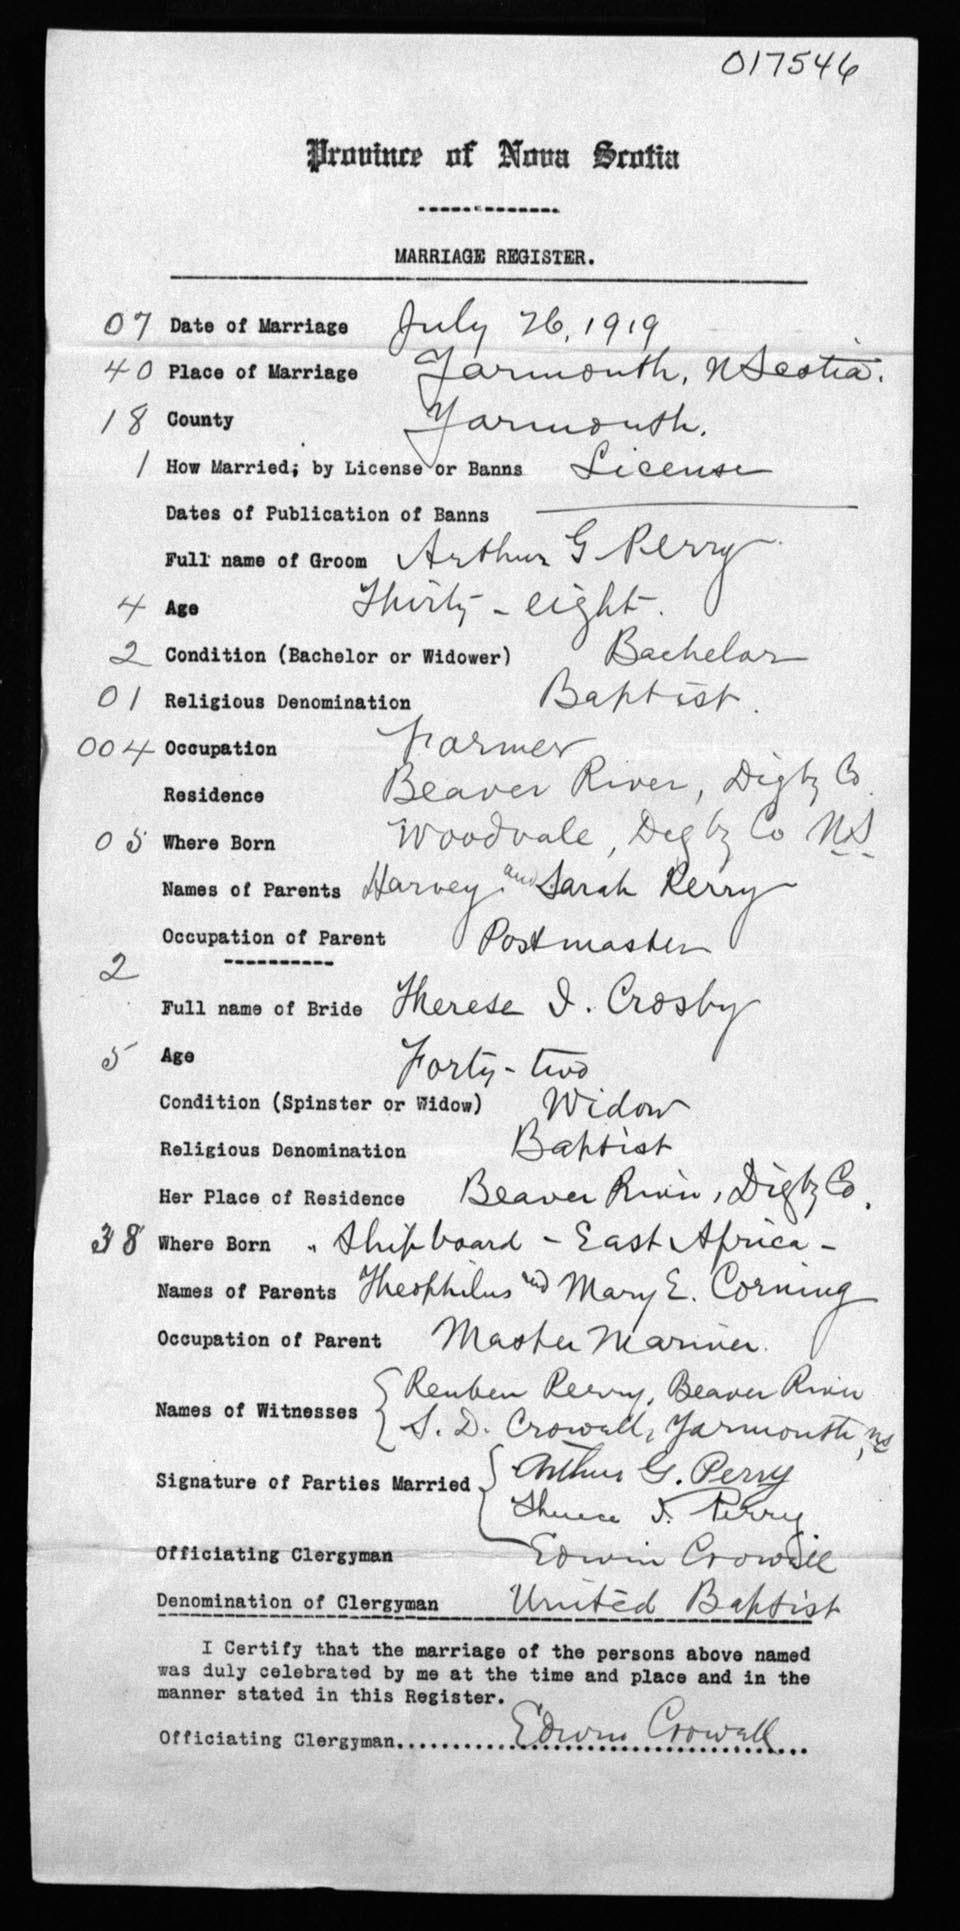 017546
Province of Nova Scotia
MARRIAGE REGISTER.
07 Date of Marriage July 26, 1919
40 Place of Marriage Yarmouth, N Scotia.
18 County Yarmouth.
1 How Married; by License or Banns License
Dates of Publication of Banns
Full name of Groom Arthur G Perry
4 Age Thirty-eight.
2 Condition (Bachelor or Widower) Bachelor
01 Religious Denomination Baptist.
004 Occupation Farmer
Residence Beaver River, Digby Co.
05 Where Born Woodvale, Digby Co NS
Names of Parents Harvey and Sarah Perry
Occupation of Parent Postmaster
2
Full name of Bride Therese I. Crosby
5 Age Forty-two
Condition (Spinster or Widow) Widow
Religious Denomination Baptist
Her Place of Residence Beaver River, Digby Co.
38 Where Born " Shipboard - East Africa -
Names of Parents Theophilus and Mary E. Corning
Occupation of Parent Master Mariner.
Names of Witnesses { Reuben Perry, Beaver River
S. D. Crowell, Yarmouth, NS
Signature of Parties Married { Arthur G. Perry
Therese I. Perry
Officiating Clergyman Edwin Crowell
Denomination of Clergyman United Baptist
I Certify that the marriage of the persons above named
was duly celebrated by me at the time and place and in the
manner stated in this Register.
Officiating Clergyman.......Edwin Crowell.......